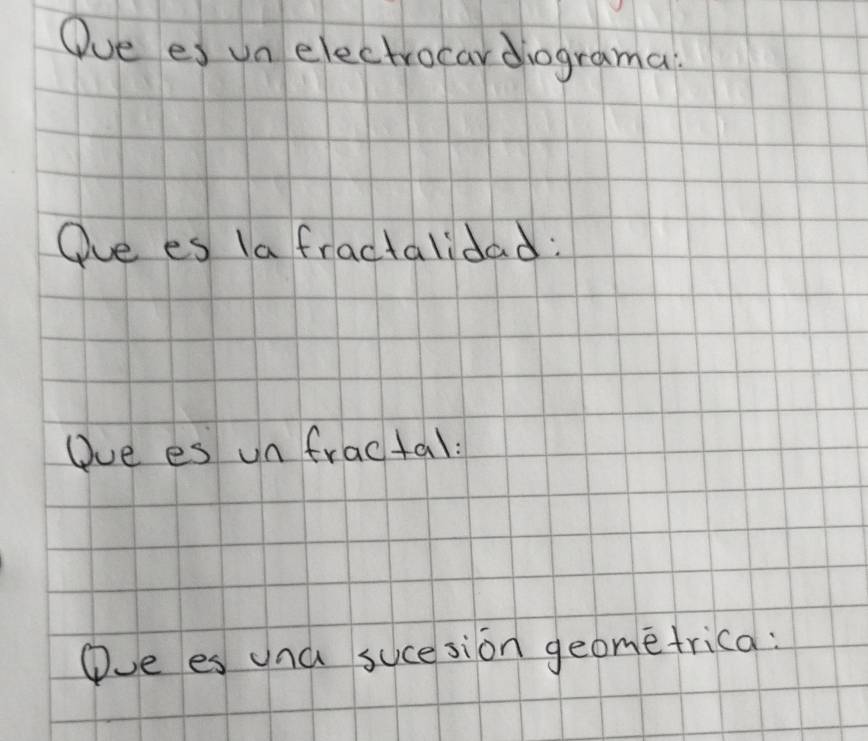 Que es un electrocardiograma:
Que es la fractalidad:
Que es un fractal:
Que es una sucesión geométrica: